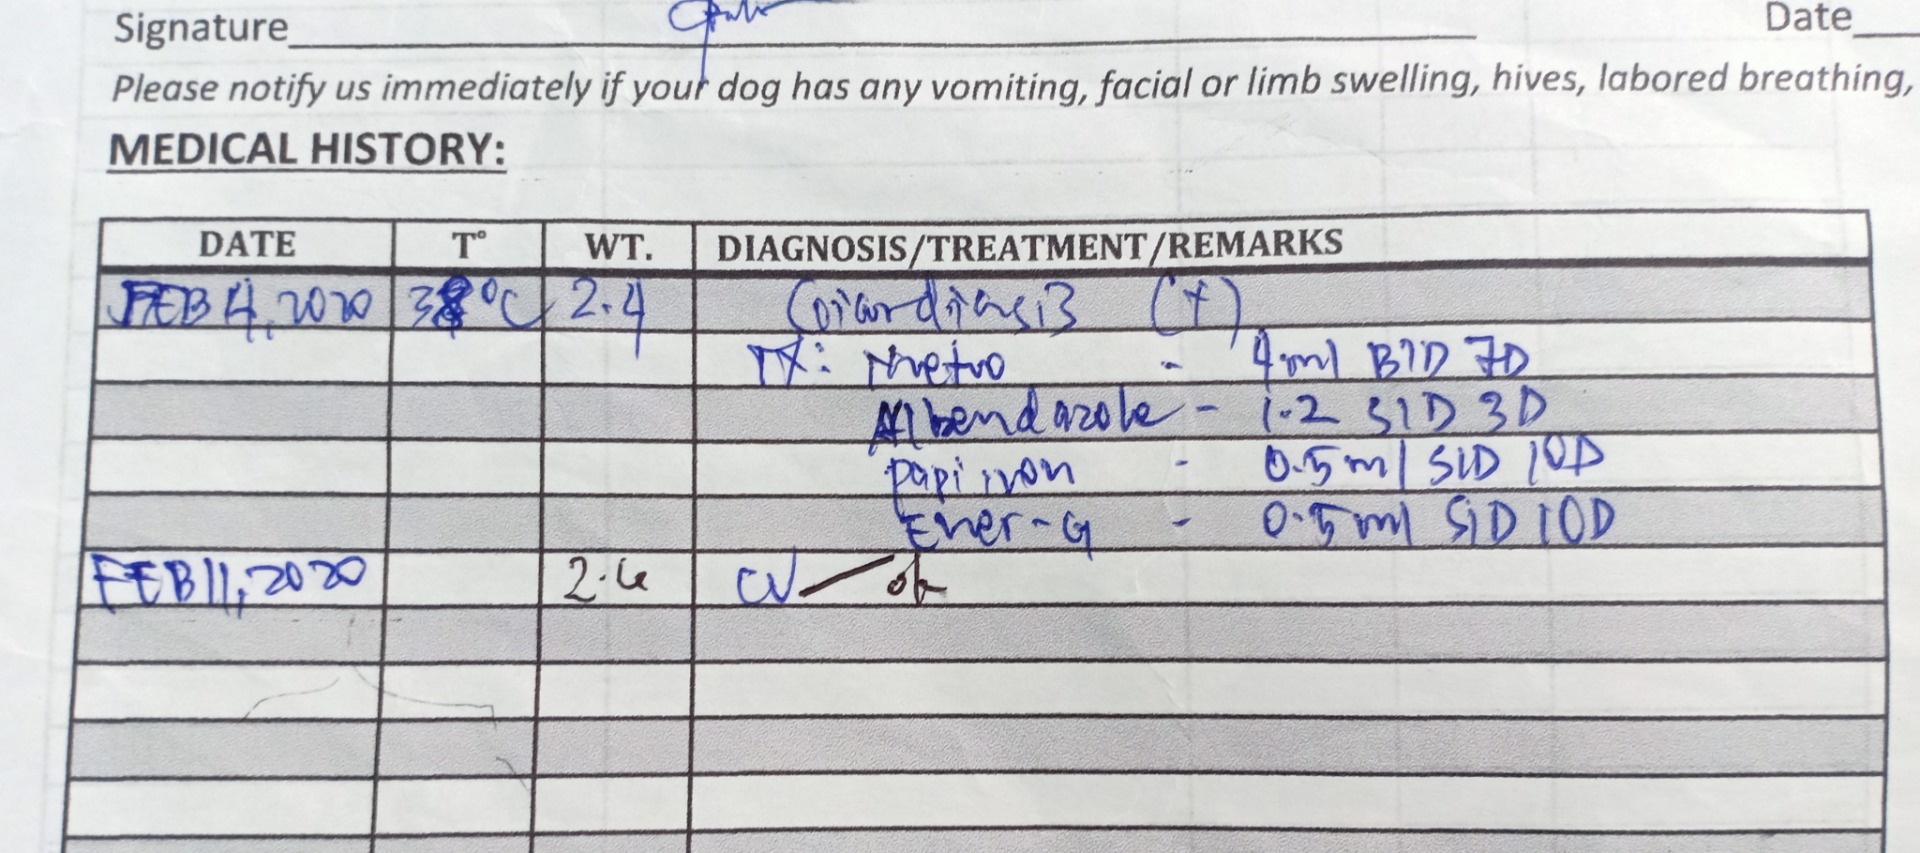 Signature Date
Please notify us immediately if your dog has any vomiting, facial or limb swelling, hives, labored breathing,
MEDICAL HISTORY:
DATE T° WT. DIAGNOSIS/TREATMENT/REMARKS
FEB 4, 2020 38°C 2.4 Giardiasis (+)
TX: Metro - 4ml BID 7D
Albendazole - 1.2 SID 3D
Papi iron - 0.5ml SID 10D
Ener-G - 0.5ml SID 10D
FEB 11, 2020 2.6 ok